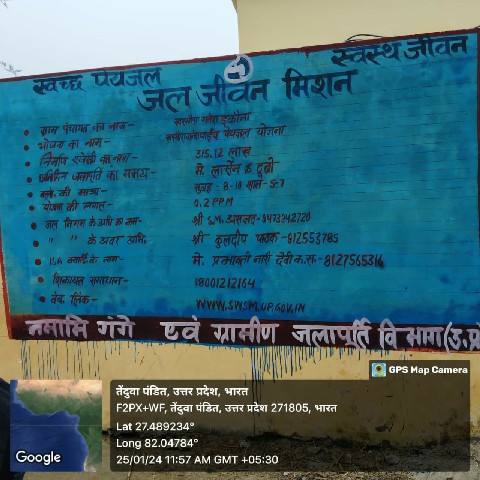 स्वच्छ पेयजल
स्वस्थ जीवन
जल जीवन मिशन
ग्राम पंचायत का नाम- इकौना
योजना का नाम- पेयजल योजना
315.12 लाख
मे. लार्सन & टुब्रो
सुबह: 8-10 शाम- 5-7
0.2 PPM
जल निगम के श्री S.M. असजद-9473942720
" " के अवर अभि. श्री कुलदीप पाठक-812553785
ISA के नाम- मे. प्रभावती नारी 8127565316
शिकायत समाधान- 18001212164
वेब. लिंक- WWW.SWSM.UP.GOV.IN
नमामि गंगे एवं ग्रामीण जलापर्ति विभाग(उ.प्र
GPS Map Camera
तेंदुवा पंडित, उत्तर प्रदेश, भारत
F2PX+WF, तेंदुवा पंडित, उत्तर प्रदेश 271805, भारत
Lat 27.489234°
Long 82.04784°
25/01/24 11:57 AM GMT +05:30
Google